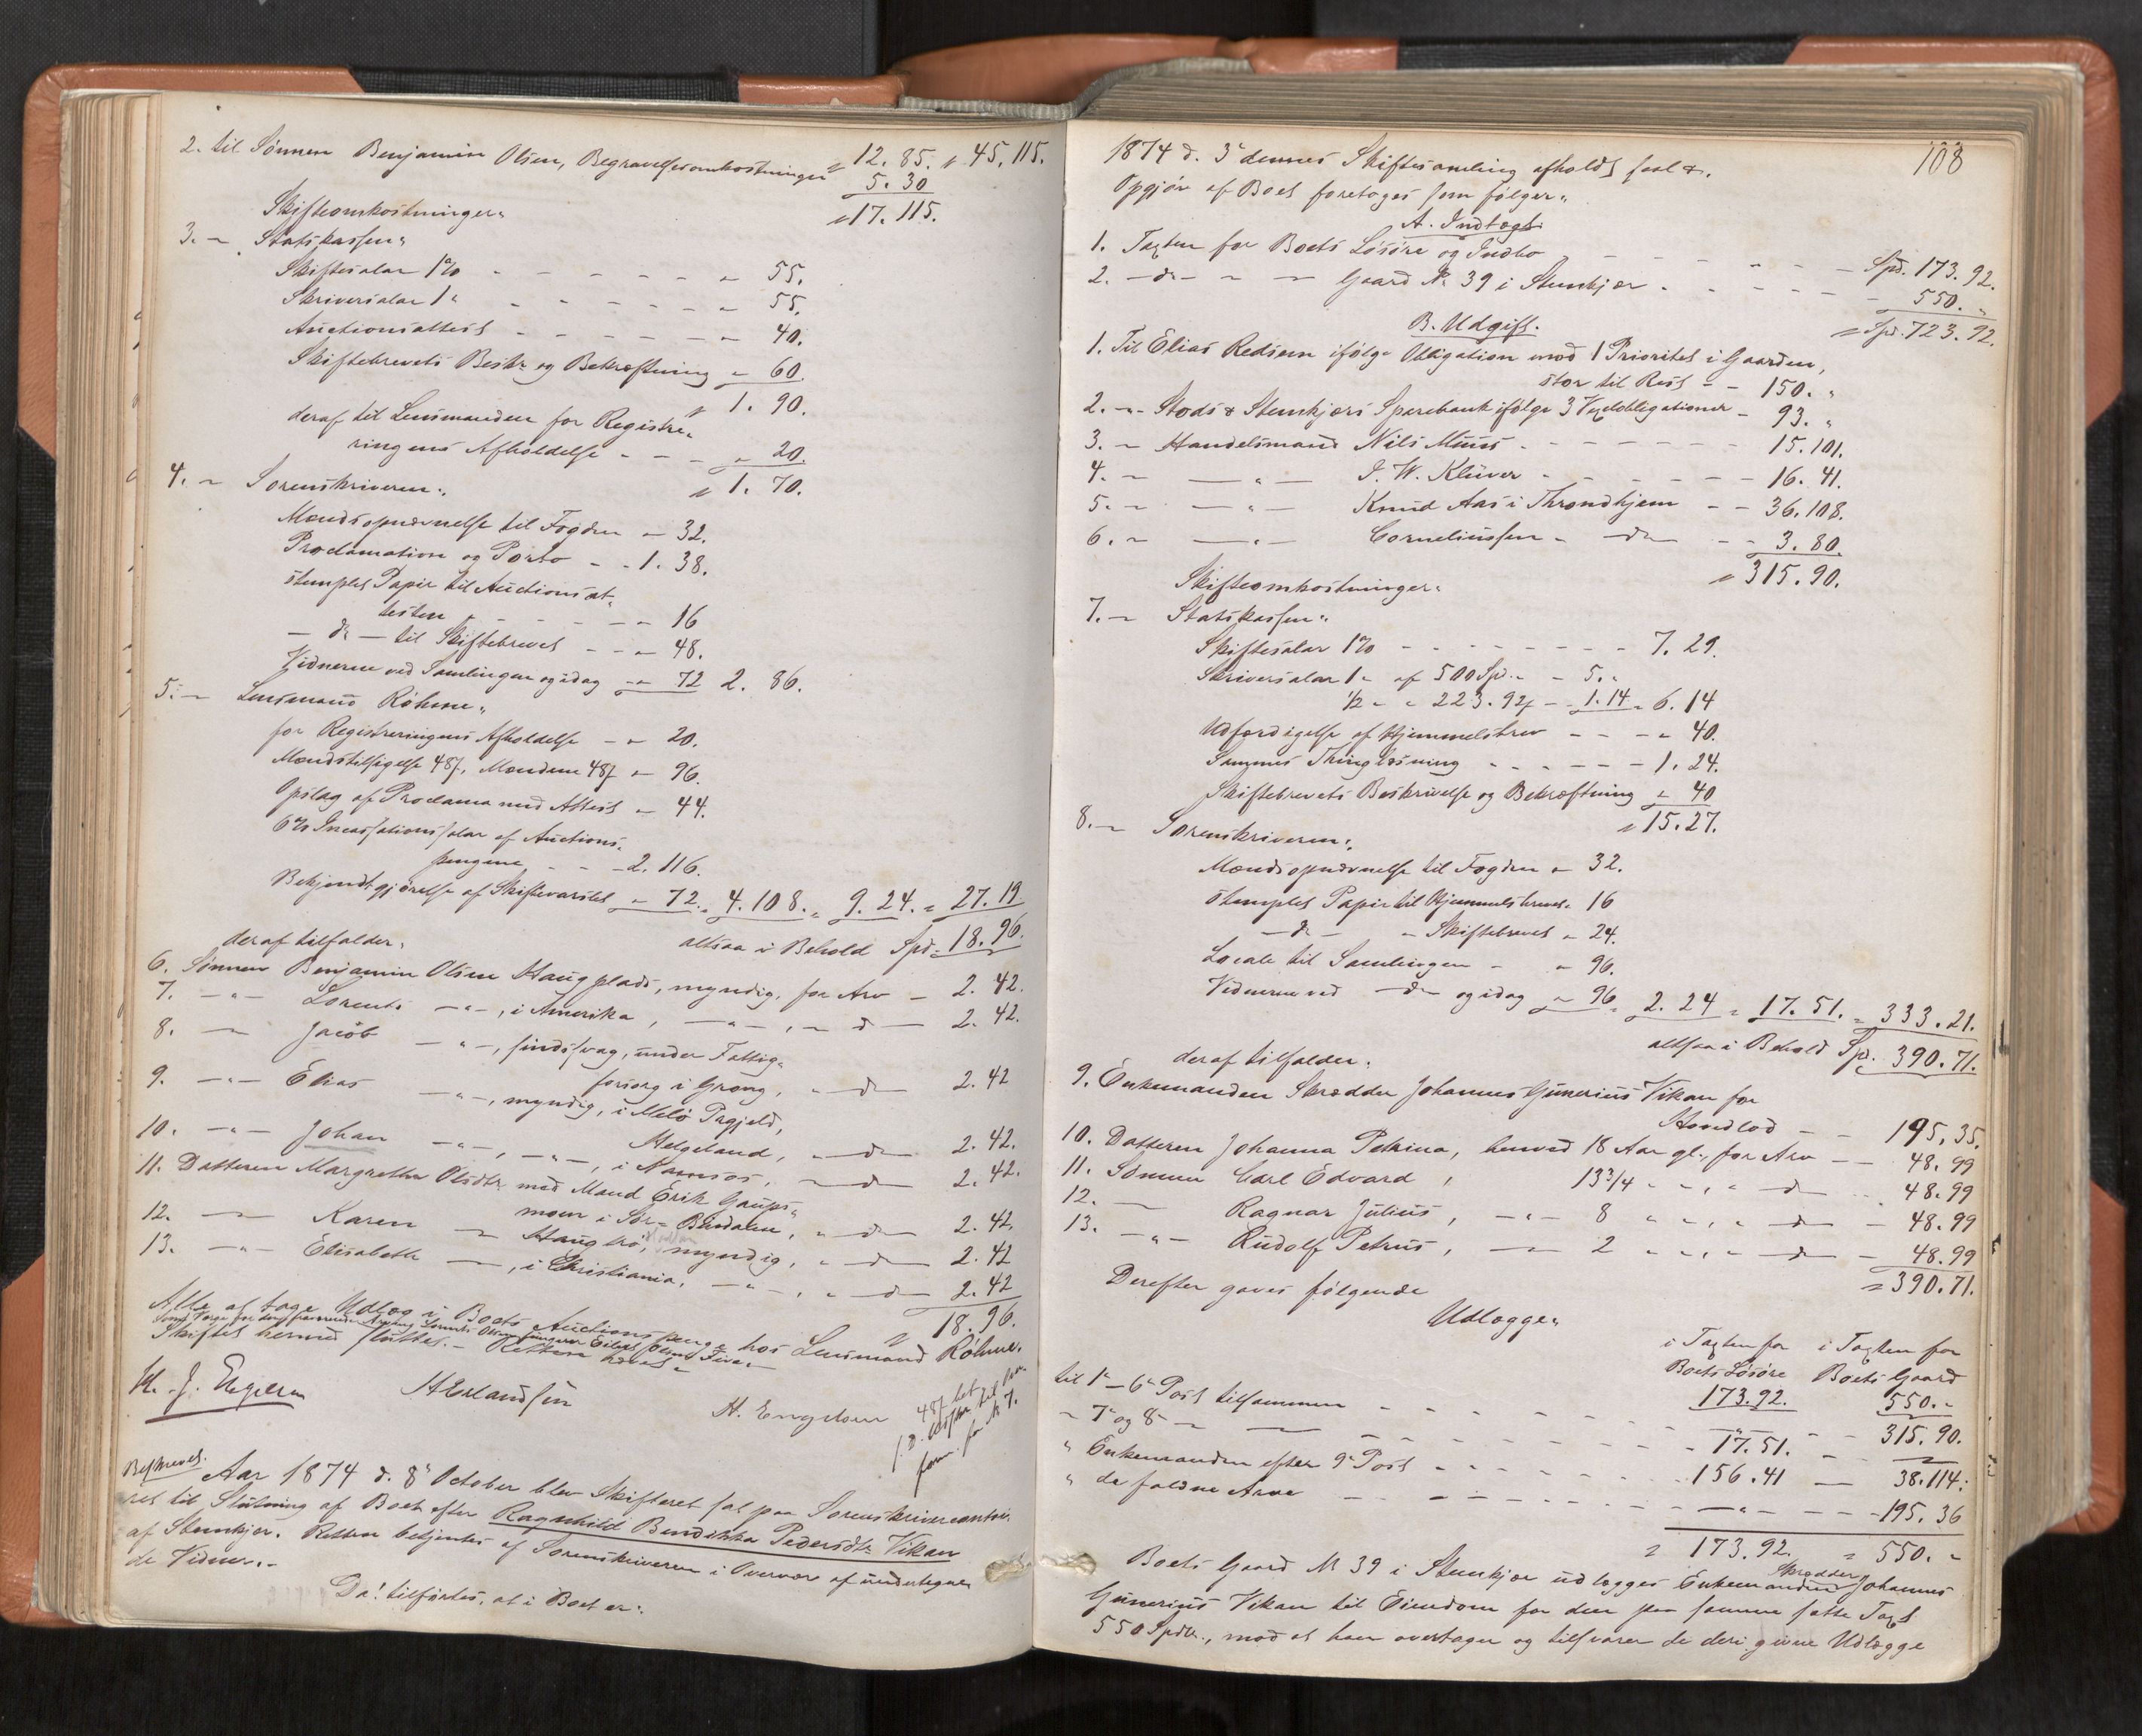 2. til Sønnen Benjamin Olsen, Begravelsesomkostninger " 12. 85. " 45. 115.
5. 30
Skifteomkostninger: " 17. 115.
3. " Statskassen:
Skiftesalær 1% - - - - - - " 55.
Skriversalær 1 " - - - - - - " 55.
Auctionsattest - - - - - " 40.
Skiftebrevets Beskr. og Bekræftning " 60.
" 1. 90.
deraf til Lensmanden for Registre-
ringens Afholdelse - - - " 20.
" 1. 70.
4. " Sorenskriveren:
Mændsopnævnelse til Fogden " 32.
Proclamation og Porto - - 1. 38.
stemplet Papir til Auctionsat-
testen - - - - " 16
- do - til Skiftebrevet - - " 48.
Vidnerne ved Samlingen og idag - " 72 2. 86.
5. " Lensmand Røhme:
for Registreringens Afholdelse - " 20.
Mændstilsigelse 48 f, Mændene 48 f " 96.
Opslag af Proclama med Attest " 44.
6% Incassationssalær af Auctions-
pengene - - - 2. 116.
Bekjendtgjørelse af Skiftevarslet " 72. " 4. 108. " 9. 24. " 27. 19
altsaa i Behold Spd. 18. 96.
deraf tilfalder:
6. Sønnen Benjamin Olsen Haugplads, myndig, for Arv - 2. 42.
7. - " - Lorents - " -, i Amerika, - " -, " d - 2. 42.
8. - Jacob - " -, sindssvag, under Fattig-
forsorg i Grong, " d - 2. 42
9. - " - Elias - " -, myndig, i Melø Prgjeld,
Helgeland, " d - 2. 42.
10. - " - Johan - " -, - " -, i Namsos, " d - 2. 42.
11. Datteren Margrethe Olsdtr. med Mand Erik Gaups-
moen i Sør-Bindalen, " d - 2. 42.
12. - Karen - Haugbø, myndig, " d - 2. 42
13. - " - Elisabeth -, i Christiania, - " -, " d - 2. 42
" 18. 96.
Alle at tage Udlæg i Boets Auctionspenge hos Lensmand Røhme.
Skiftet hermed sluttet. - Retten hævet. -
H. Erlandsen
H. Engdom
Beskrevet.
Aar 1874 d. 8de October blev Skifteret sat paa Sorenskrivercontoi-
ret til Slutning af Boet efter Ragnhild Bendikka Pedersdtr. Vikan
af Stenkjær. Retten betjentes af Sorenskriveren i Overvær af undertegne-
de Vidner. -
Da! tilførtes, at i Boet er:
108
1874 d. 3de dennes Skiftesamling afholdt saal. &.
Opgjør af Boet foretoges som følger:
A. Indtægt.
1. Taxten for Boets Løsøre og Indbo - - - - - - Spd. 173. 92.
2. - do - " - Gaard No 39 i Stenkjær - - - - - 550. "
" Spd. 723. 92.
B. Udgift.
1. Til Elias Redsem ifølge Obligation med 1 Prioritet i Gaarden,
stor til Rest - - 150. "
2. - " - Stods & Stenkjærs Sparebank ifølge 3 Vexelobligationer - 93. "
3. " Handelsmand Nils Muus - - - - - - - 15. 101.
4. " - " - J. W. Klüver - - - - - - 16. 41.
5. " - " - Knud Aas i Throndhjem - - 36. 108.
6. " - " - Corneliussen - do - - 3. 80.
" 315. 90.
Skifteomkostninger:
7. " Statskassen:
Skiftesalær 1% - - - - - - - - 7. 29.
Skriversalær 1 " af 500 Spd. - - 5. "
1/2 - " 223. 92 f - - 1. 14. " 6. 14
Udfærdigelse af Hjemmelsbrev - - - " 40.
Sammes Thinglæsning - - - - - - 1. 24.
Skiftebrevets Beskrivelse og Bekræftning " 40
" 15. 27.
8. " Sorenskriveren:
Mændsopnævnelse til Fogden " 32.
stemplet Papir til Hjemmelsbrevet " 16
- do - " Skiftebrevet " 24.
Locale til Samlingen - " 96.
Vidnerne ved - do - og idag " 96 " 2. 24 " 17. 51. " 333. 21.
altsaa i Behold Sp. 390. 71.
deraf tilfalder:
9. Enkemanden Skrædder Johannes Gunerius Vikan for
Hovedlod - - 195. 35.
10. Datteren Johanna Petrina, henved 18 Aar gl., for Arv - - 48. 99
11. Sønnen Carl Edvard, 13 3/4 - " -, " do - 48. 99
12. - Ragnar Julius, - " - 8 " ", " do - 48. 99
13. - " - Rudolf Petrus, - 2 " ", " do - 48. 99
" 390. 71.
Derefter gaves følgende
Udlægge:
i Taxten for i Taxten for
Boets Løsøre Boets Gaard
173. 92. 550. -
til 1ste - 6te Post tilsammen - - - - - - - " - - - 315. 90.
" 7de og 8de - - - - - - - - - 17. 51. -
" Enkemanden efter 9de Post - - - - - - 156. 41 - 38. 114.
" de faldne Arve - - - - - - - " - - - 195. 36
" 173. 92. " 550. -
Boets Gaard No 39 i Stenkjær udlægges Enkemanden Skrædder Johannes
Gunerius Vikan til Eiendom for den paa samme satte Taxt
550 Spdlr., mod at han overtager og tilsvarer de deri givne Udlægge